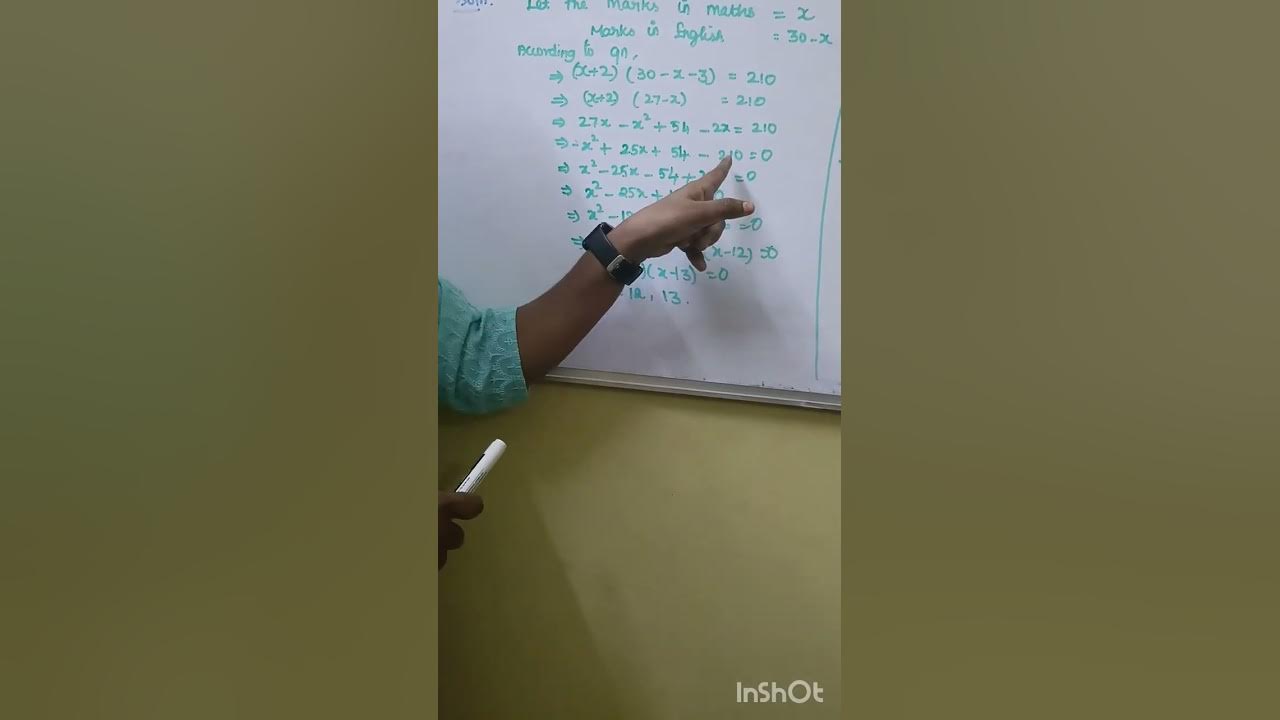 Soln.
Let the marks in maths = x
Marks in English = 30-x
According to qn,
⇒ (x+2) (30-x-3) = 210
⇒ (x+2) (27-x) = 210
⇒ 27x - x² + 54 - 2x = 210
⇒ -x² + 25x + 54 - 210 = 0
⇒ x² - 25x - 54 + 2 = 0
⇒ x² - 25x + 0
⇒ x² - 12 = 0
⇒ (x-12) = 0
)(x-13) = 0
12, 13.
InShOt